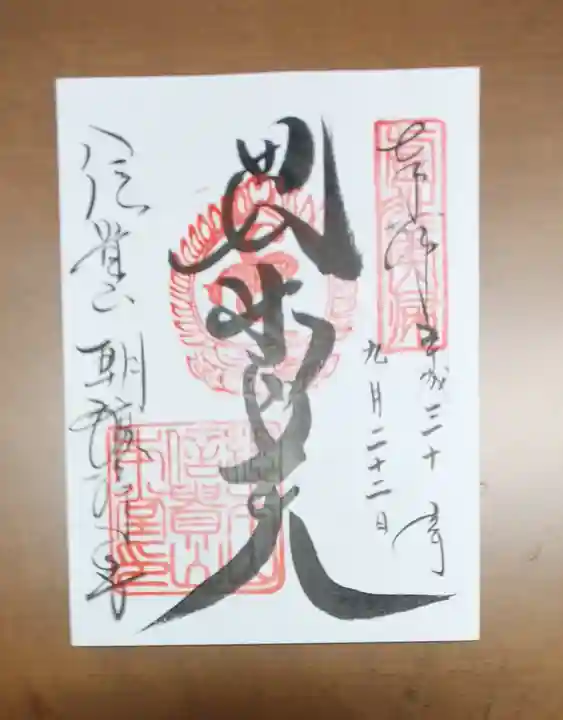 奉拝 平成三十年
九月二十二日
毘沙門天
信貴山 朝護孫子寺